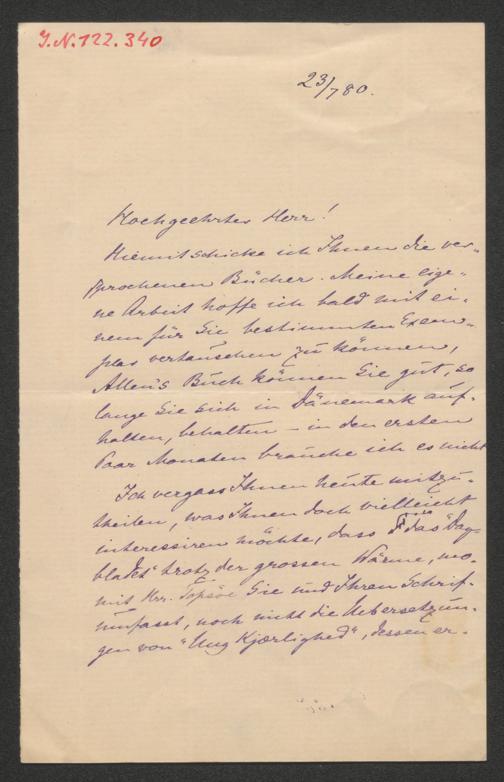 J.N. 122.340
23/7 80.
Hochgeehrter Herr!
Hiemit schicke ich Ihnen die ver-
sprochenen Bücher. Meine eige-
ne Arbeit hoffe ich bald mit ei-
nem für Sie bestimmten Exem-
plar vertauschen zu können,
Allen's Buch können Sie gut, so
lange Sie sich in Dänemark auf-
halten, behalten – in den ersten
Paar Monaten brauche ich es nicht
Ich vergass Ihnen heute mitzu-
theilen, was Ihnen doch vielleicht
interessiren möchte, dass "Dag-
bladet" trotz der grossen Wärme, wo-
mit Hrr. Topsöe Sie und Ihren Schrif-
umfasst, noch nicht die Uebersetzun-
gen von "Ung Kjærlighed", dessen er-